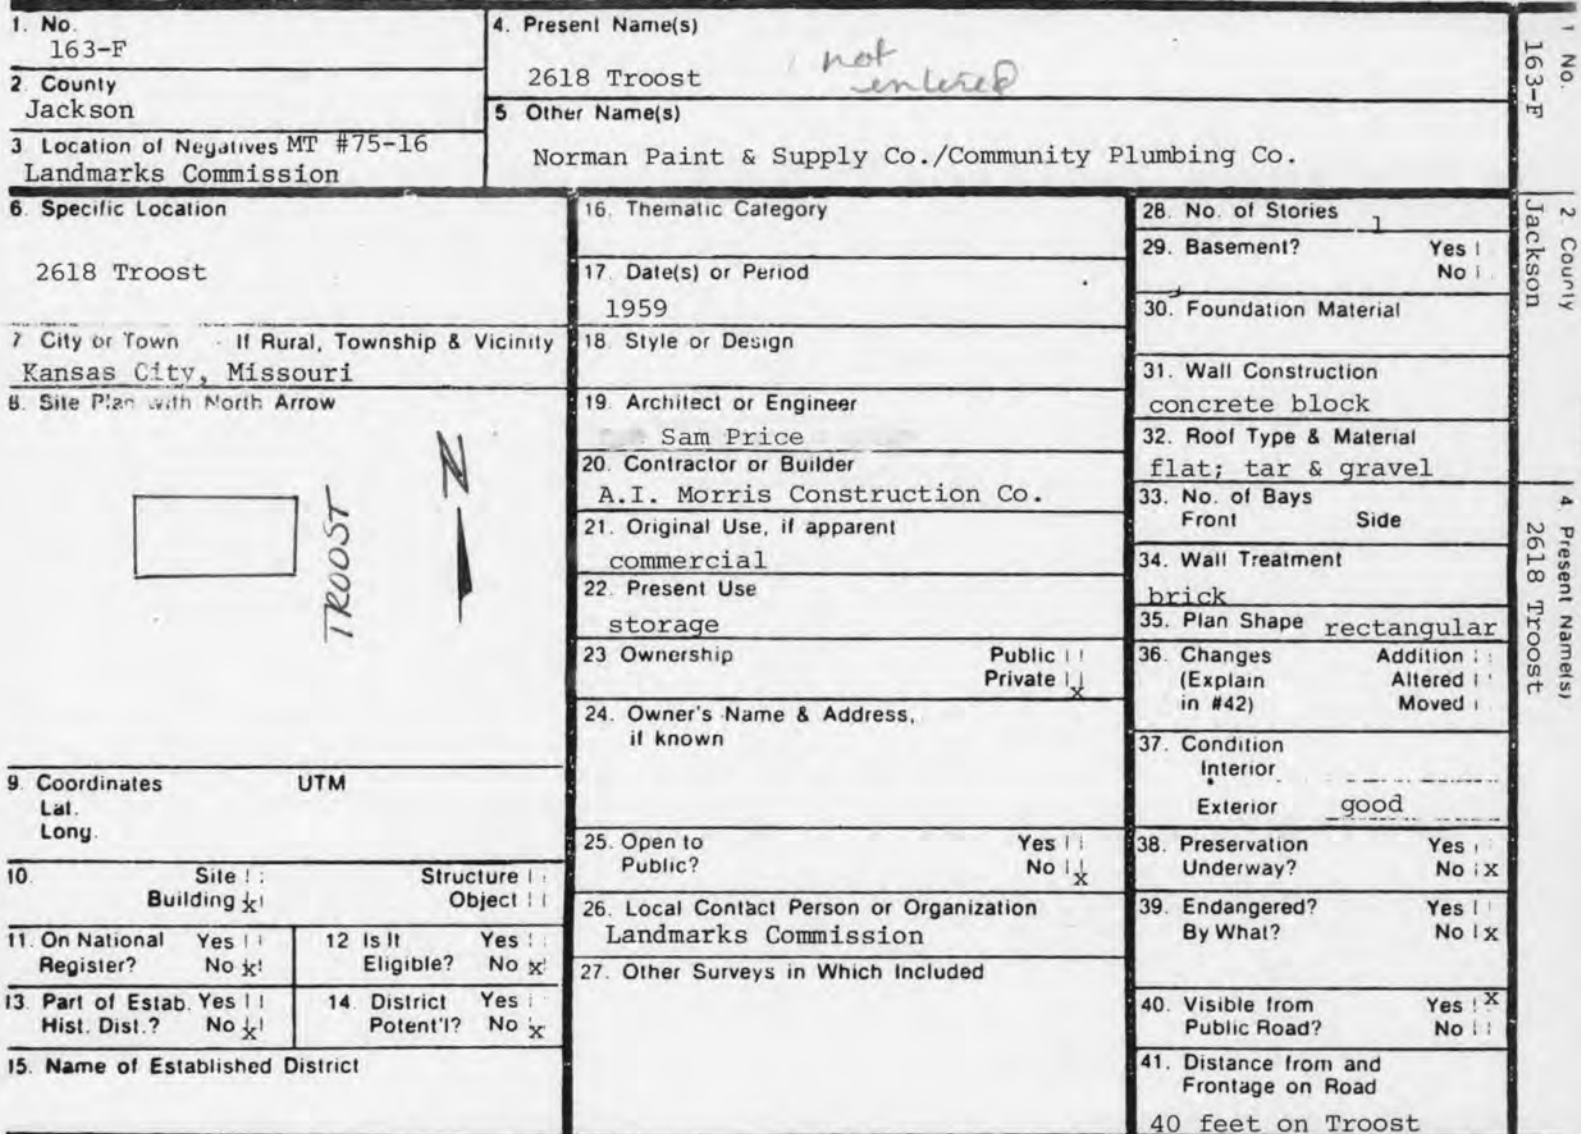 1. No.
163-F
2. County
Jackson
3 Location of Negatives MT #75-16
Landmarks Commission
4. Present Name(s)
2618 Troost
not
entered
5 Other Name(s)
Norman Paint & Supply Co./Community Plumbing Co.
6. Specific Location
2618 Troost
7 City or Town If Rural, Township & Vicinity
Kansas City, Missouri
8. Site Plan with North Arrow
N
TROOST
9. Coordinates UTM
Lat.
Long.
10. Site Structure
Building x Object
11. On National Yes
Register? No x
12 Is It Yes
Eligible? No x
13. Part of Estab. Yes
Hist. Dist.? No x
14. District Yes
Potent'l? No x
15. Name of Established District
16. Thematic Category
17. Date(s) or Period
1959
18. Style or Design
19. Architect or Engineer
Sam Price
20. Contractor or Builder
A.I. Morris Construction Co.
21. Original Use, if apparent
commercial
22. Present Use
storage
23 Ownership Public
Private x
24. Owner's Name & Address,
if known
25. Open to Yes
Public? No x
26. Local Contact Person or Organization
Landmarks Commission
27. Other Surveys in Which Included
28. No. of Stories 1
29. Basement? Yes
No
30. Foundation Material
31. Wall Construction
concrete block
32. Roof Type & Material
flat; tar & gravel
33. No. of Bays
Front Side
34. Wall Treatment
brick
35. Plan Shape rectangular
36. Changes Addition
(Explain Altered
in #42) Moved
37. Condition
Interior
Exterior good
38. Preservation Yes
Underway? No x
39. Endangered? Yes
By What? No x
40. Visible from Yes x
Public Road? No
41. Distance from and
Frontage on Road
40 feet on Troost
1 No.
163-F
2. County
Jackson
4. Present Name(s)
2618 Troost